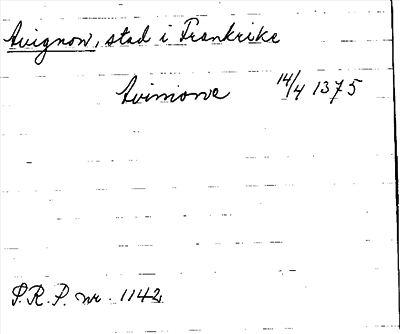 Avignon, stad i Frankrike
Avinione 14/4 1375
S.R.P. nr. 1142